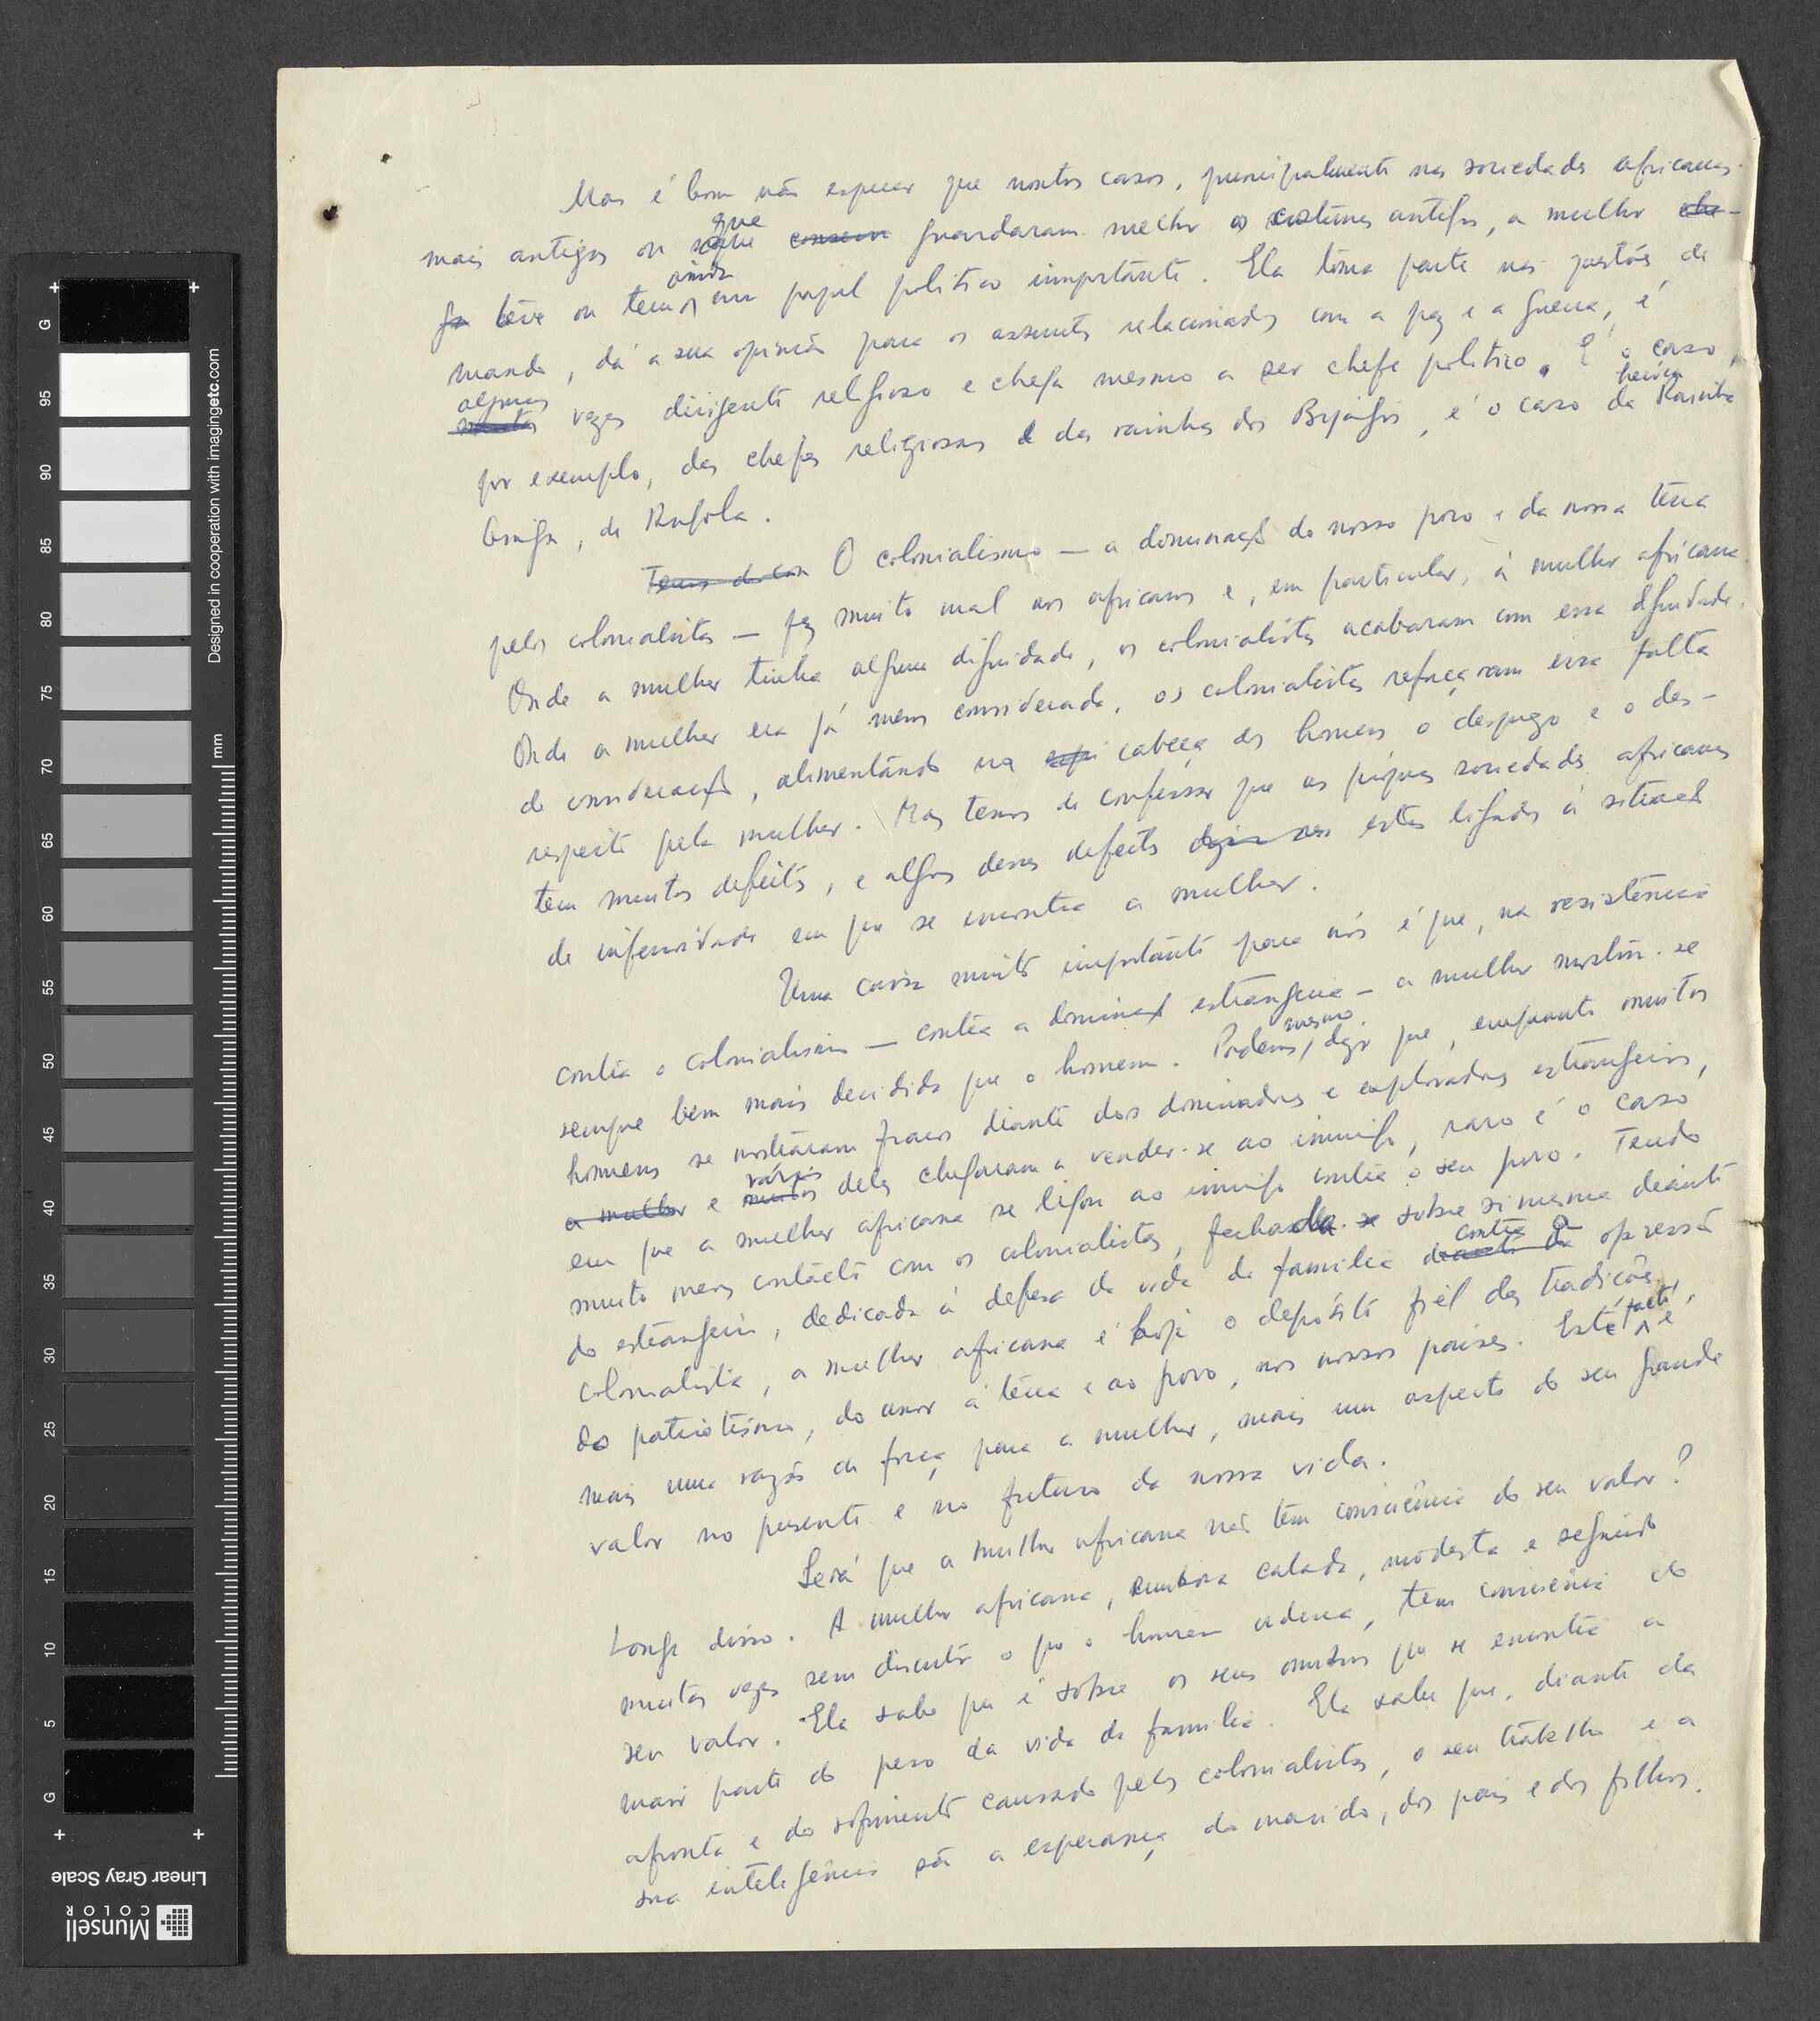 Mas é bom não esquecer que noutros casos, principalmente nas sociedades africanas
mais antigas ou que guardaram melhor os costumes antigos, a mulher
teve ou tem ainda um papel politico importante. Ela toma parte nas questões de
mando, dá a sua opinião para os assuntos relacionados com a paz e a guerra, é
algumas vezes dirigente religioso e chega mesmo a ser chefe politico. É o caso,
por exemplo, das chefes religiosas e das rainhas dos Bijagós, é o caso da heroica Rainha
Ginga, de Angola.
O colonialismo — a dominação do nosso povo e da nossa terra
pelos colonialistas — fez muito mal aos africanos e, em particular, à mulher africana.
Onde a mulher tinha alguma dignidade, os colonialistas acabaram com essa dignidade.
Onde a mulher era já menos considerada, os colonialistas reforçaram essa falta
de consideração, alimentando na cabeça dos homens o desprezo e o des-
respeito pela mulher. Mas temos de confessar que as próprias sociedades africanas
tem muitos defeitos, e alguns desses defeitos estão ligados à situação
de inferioridade em que se encontra a mulher.
Uma coisa muito importante para nós é que, na resistência
contra o colonialismo — contra a dominação estrangeira — a mulher mostrou-se
sempre bem mais decidida que o homem. Podemos mesmo dizer que, enquanto muitos
homens se mostraram fracos diante dos dominadores e exploradores estrangeiros,
e vários deles chegaram a vender-se ao inimigo, raro é o caso
em que a mulher africana se ligou ao inimigo contra o seu povo. Tendo
muito menos contacto com os colonialistas, fechada sobre si mesma diante
do estrangeiro, dedicada à defesa da vida da familia contra a opressão
colonialista, a mulher africana é hoje o depósito fiel das tradições,
do patriotismo, do amor à terra e ao povo, nos nossos paises. Este facto é
mais uma razão de força para a mulher, mais um aspecto do seu grande
valor no presente e no futuro da nossa vida.
Será que a mulher africana não tem consciência do seu valor?
Longe disso. A mulher africana, embora calada, modesta e seguindo
muitas vezes sem discutir o que o homem ordena, tem consciência do
seu valor. Ela sabe que é sobre os seus ombros que se encontra a
maior parte do peso da vida da familia. Ela sabe que, diante da
afronta e do sofrimento causado pelos colonialistas, o seu trabalho e a
sua inteligência são a esperança do marido, dos pais e dos filhos.
G
95
90
85
80
75
70
65
60
55
50
45
40
35
30
25
20
15
10
5
G
mm
Designed in cooperation with imagingetc.com
Linear Gray Scale
Munsell
COLOR